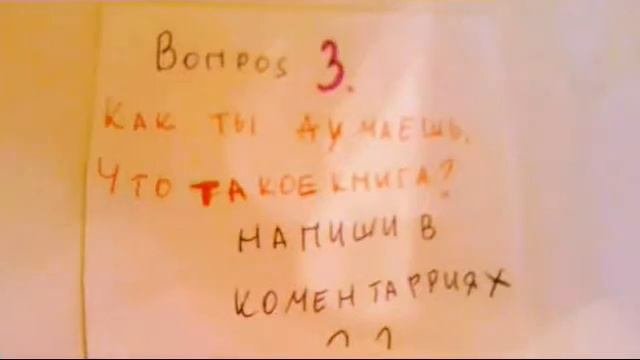 Вопроs 3.
КАК ТЫ ДУМАЕШЬ,
ЧТО ТАКОЕ КНИГА?
НАПИШИ В
КОМЕНТАРРИЯХ